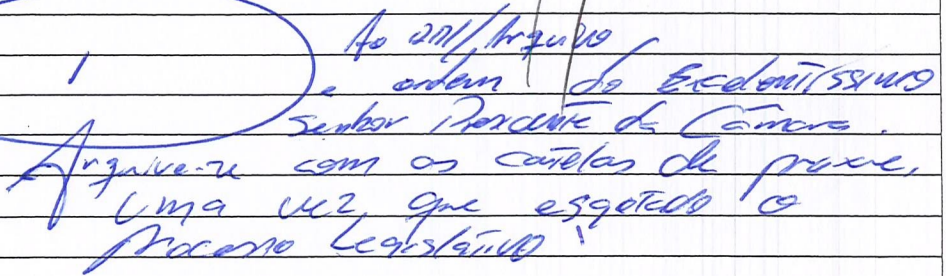 Ao /Arquivo
e ordem do Excelentíssimo
Senhor Presidente da Câmara.
Arquive-se com as cautelas de praxe,
uma vez que esgotado o
processo Legislativo